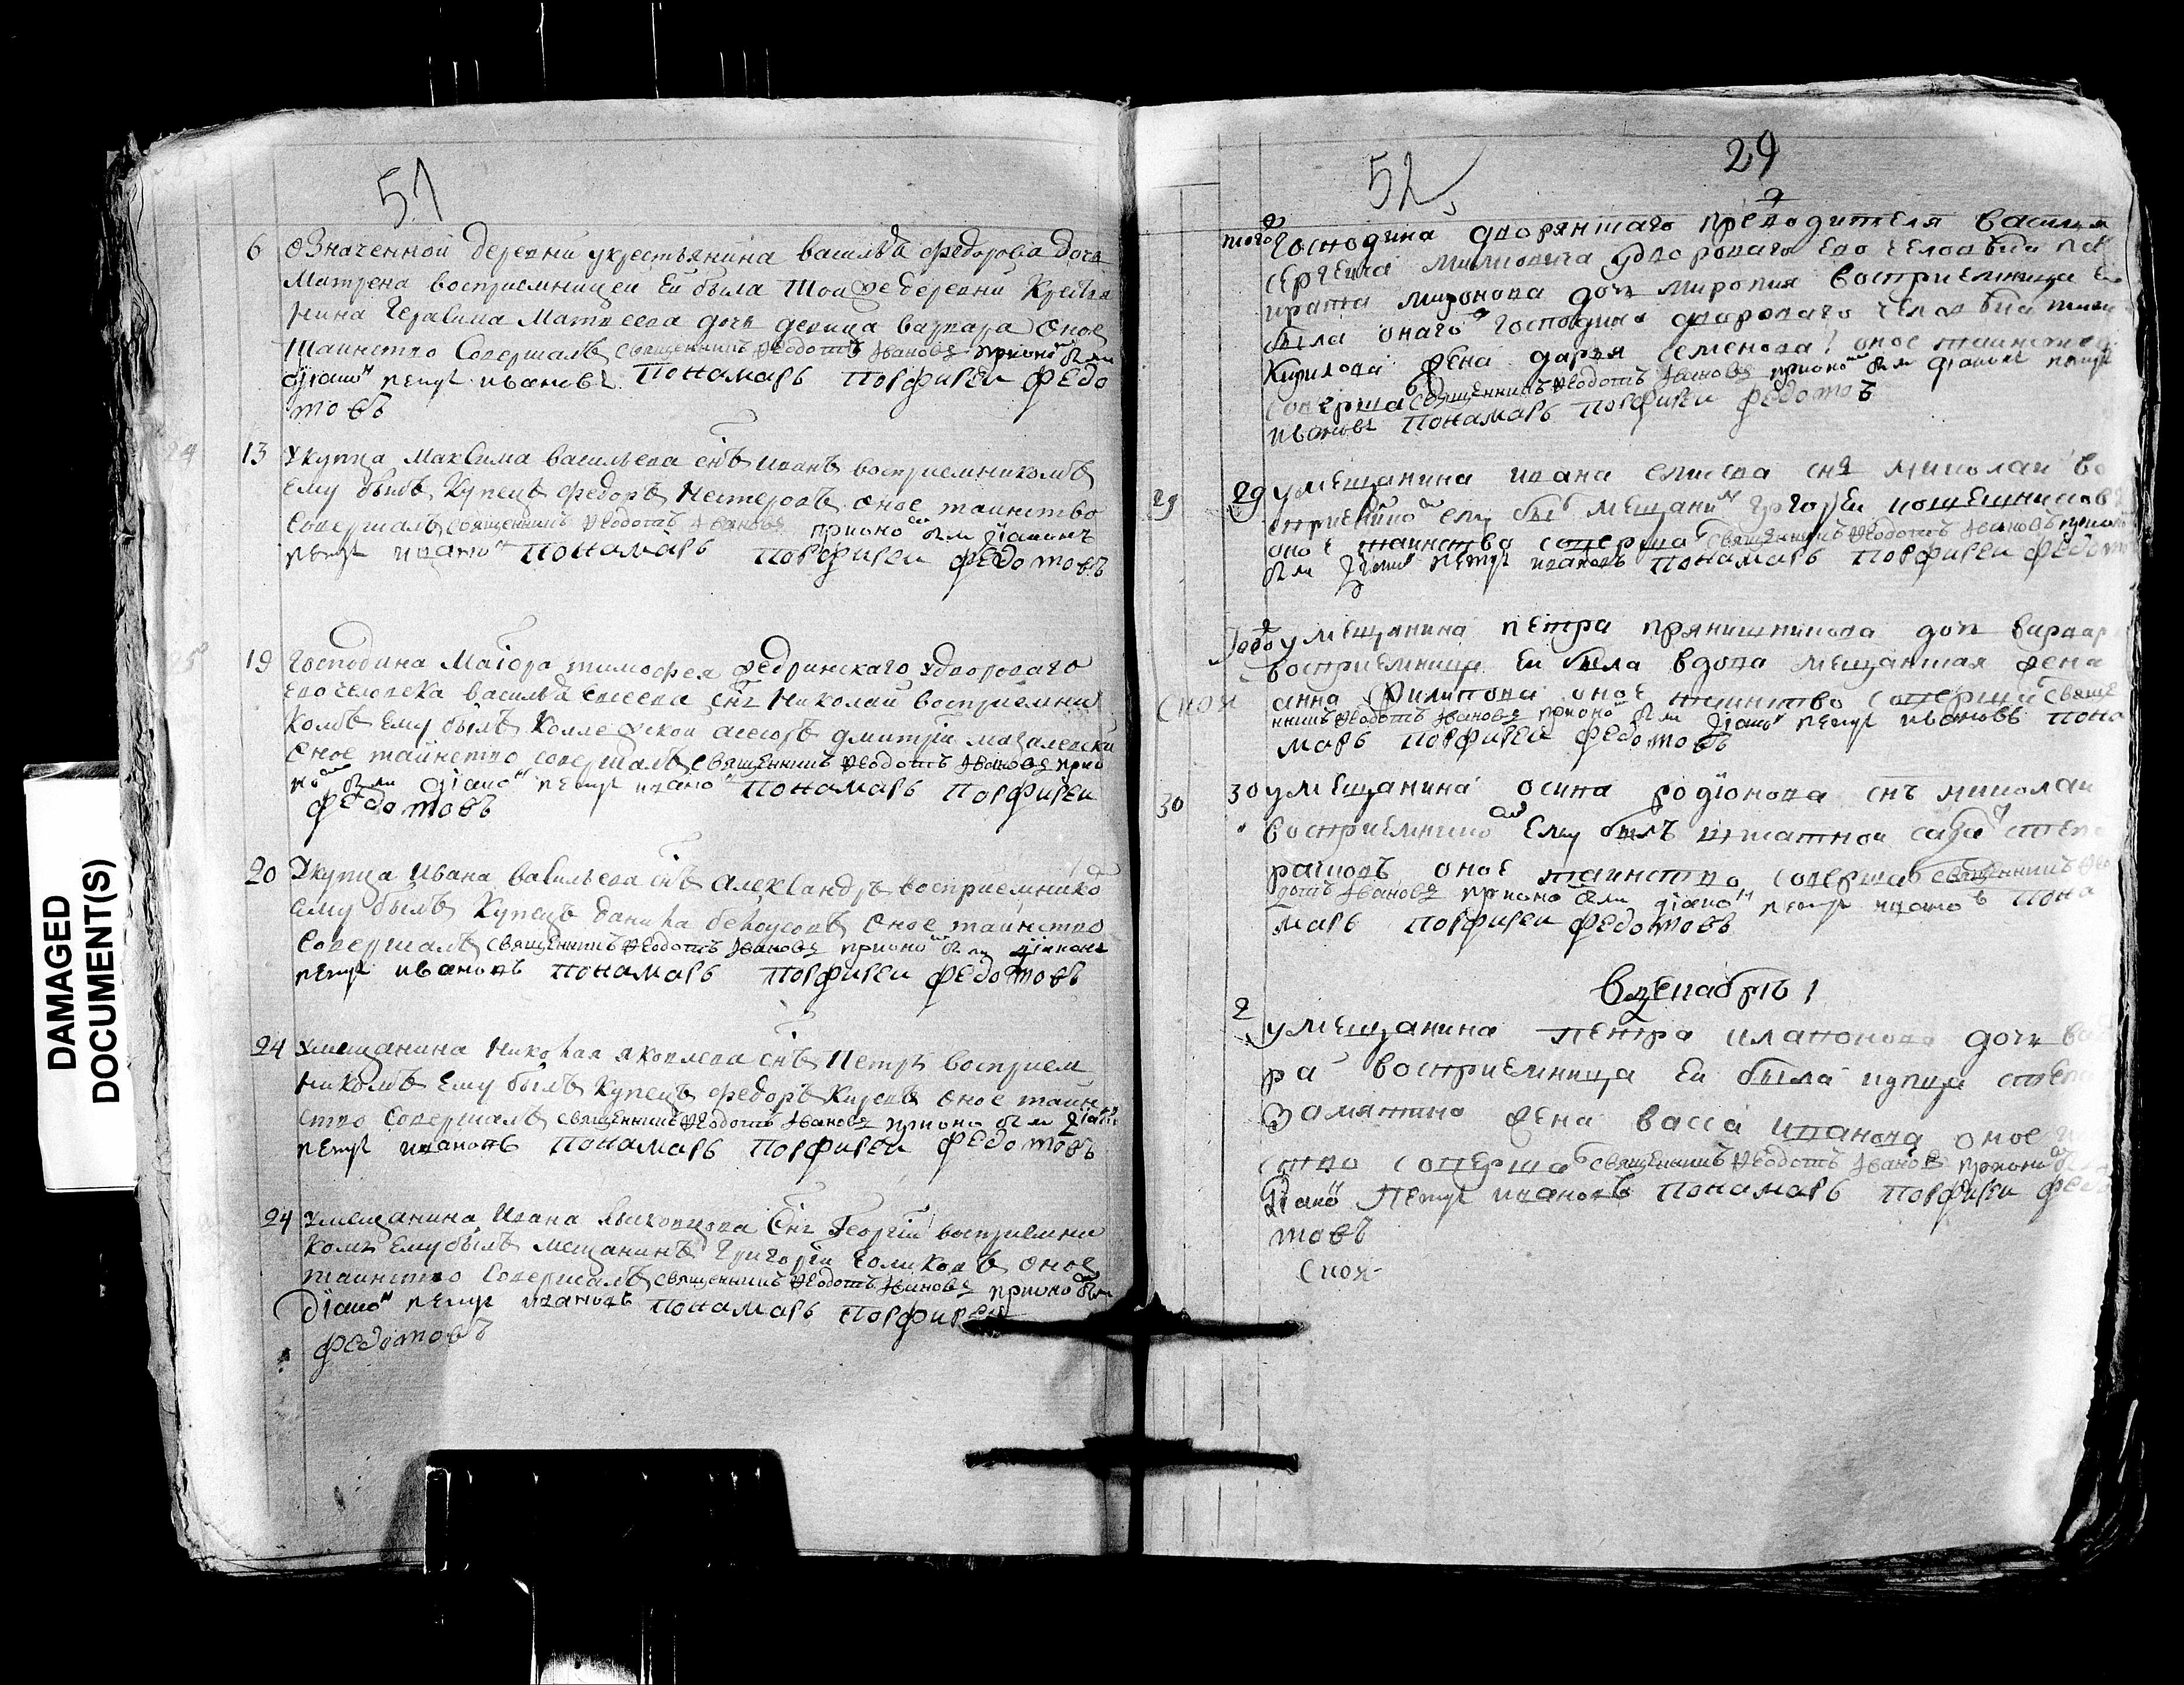 DAMAGED
DOCUMENT(S)
51
6 Означенной деревни укрестьянина василья федорова дочь
Матрена восприемницей ей была Тойже деревни Крестья
нина Герасима Матвеева дочь девица варвара оное
таинство Совершалъ священникъ Феодотъ Ивановъ приономъ были
дїаконъ петръ ивановъ Пономарь Порфирей федо
товъ
24 13 Укупца Максима васильева снъ иванъ восприемникомъ
ему былъ купецъ федоръ нестеровъ оное таинство
совершалъ священникъ Феодотъ Ивановъ приономъ были дїаконъ
петръ иванов Пономарь Порфирей федотовъ
25 19 Господина Маїора тимофея удвороваго
ево человека василья евсеева снъ Николай восприемни
комъ ему былъ Колежской асесоръ дмитрїй
оное таинство совершалъ священникъ Феодотъ Ивановъ прио
номъ были дїаконъ петръ иванов Пономарь Порфирей
федотовъ
20 Укупца Ивана васильева снъ Александръ восприемнико
ему былъ Купецъ данила белоусовъ оное таинство
Совершалъ священникъ Феодотъ Ивановъ приономъ были дїаконъ
петръ ивановъ Пономарь Порфирей федотовъ
24 Умещанина Николая яковлева снъ Петръ восприем
никомъ ему былъ Купецъ федоръ оное таин
ство Совершалъ священникъ Феодотъ Ивановъ приономъ были дїаконъ
петръ ивановъ Пономарь Порфирей федотовъ
24 Умещанина Ивана снъ Георгїй восприемни
комъ ему былъ мещанинъ Григорїй Голиковъ оное
таинство Совершалъ священникъ Феодотъ Ивановъ приономъ были
дїаконъ петръ ивановъ Пономарь Порфирей
федотовъ
52 29
тогож Господина дворянскаго предводителя василья
сергеича удвороваго ево человека
миронова дочь восприемница ей
была онаго господина двороваго человека
Кирилова жена дарья семенова оное таинство
соверша священникъ Феодотъ Ивановъ приономъ были дїаконъ петръ
ивановъ Пономарь Порфирей федотовъ
29 29 умещанина ивана снъ николай во
сприемником ему был мещанин григорей
оное таинство соверша священникъ Феодотъ Ивановъ приономъ
были дїакон петръ ивановъ Пономарь Порфирей федотов
умещанина петра прянишникова дочь варвар
восприемница ей была вдова мещанская жена
анна филипова оное таинство соверша свяще
нникъ Феодотъ Ивановъ приономъ были дїакон петръ ивановъ поно
марь Порфирей федотовъ
30 30 умещанина осипа родїонова снъ николай
восприемником ему былъ штатной салдат степа
оное таинство соверша священникъ Фео
дотъ Ивановъ приономъ были дїакон петръ иванов Поно
марь Порфирей федотовъ
вдекабрѣ
2 умещанина петра дочь вар
ра восприемница ей была купца степа
замятина жена васса иванова оное
ство соверша священникъ Феодотъ Ивановъ приономъ
дїакон Петръ ивановъ Пономарь Порфирей федо
товъ